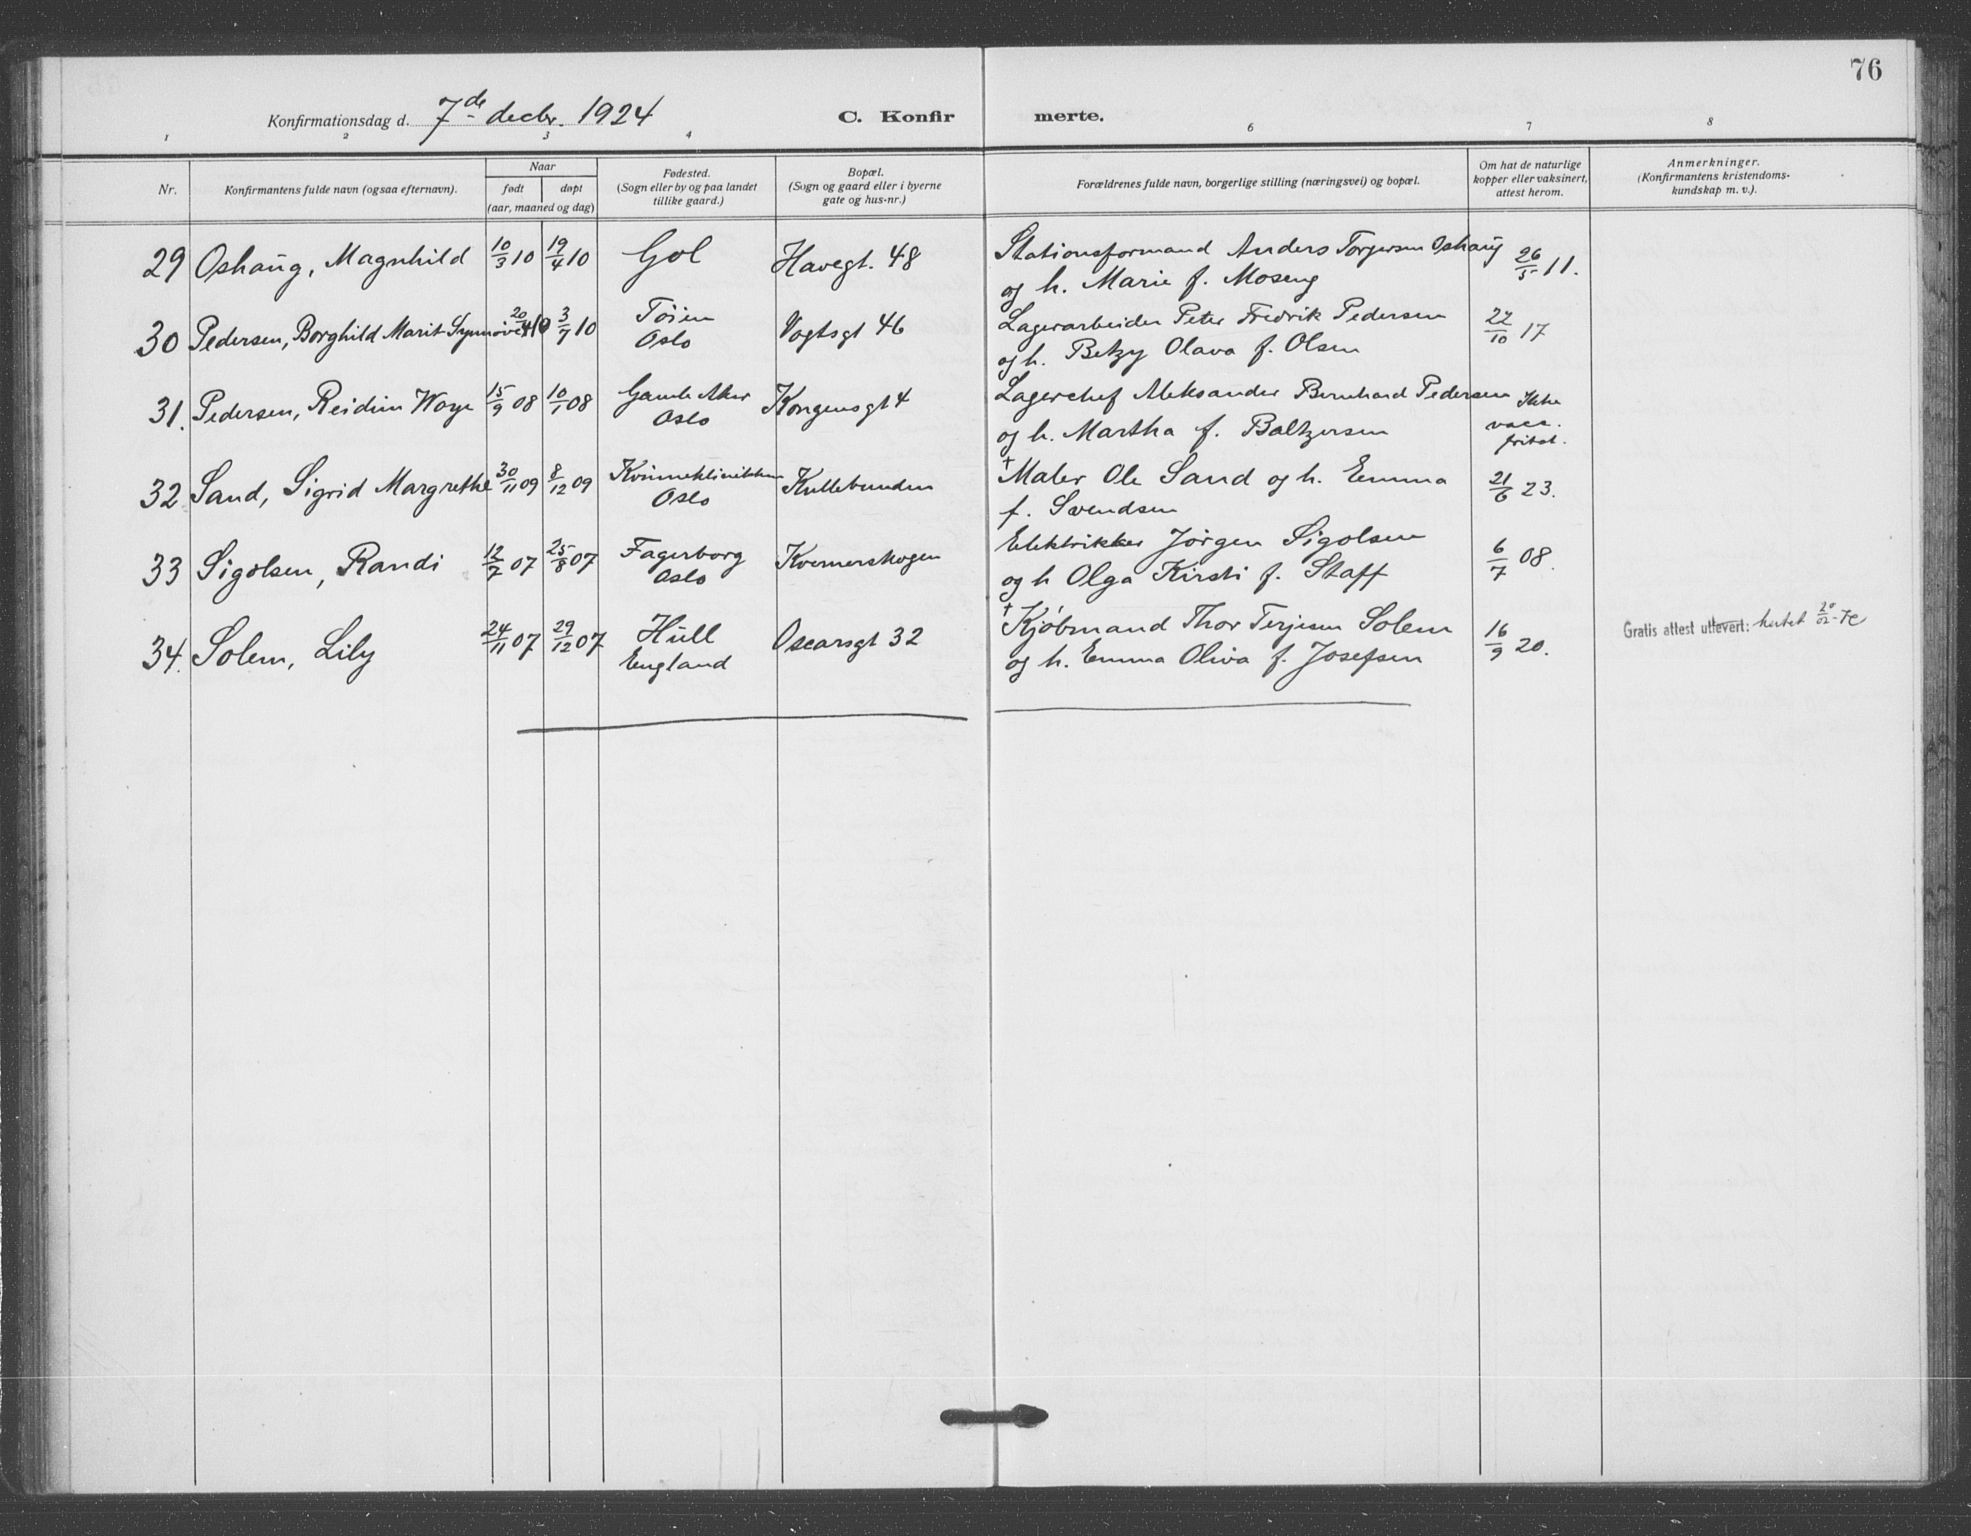 76
Konfirmationsdag d. 7de decbr. 1924 C. Konfirmerte.
1 2 3 4 6 7 8
Nr.
Konfirmantens fulde navn (ogsaa efternavn).
Naar
født døpt
(aar, maaned og dag)
Fødested.
(Sogn eller by og paa landet
tillike gaard.)
Bopæl.
(Sogn og gaard eller i byerne
gate og hus-nr.)
Forældrenes fulde navn, borgerlige stilling (næringsvei) og bopæl.
Om hat de naturlige
kopper eller vaksinert,
attest herom.
Anmerkninger.
(Konfirmantens kristendoms-
kundskap m. v.).
29 Oshaug, Magnhild 10/3 10 19/4 10 Gol Havegt. 48 Stationsformand Anders Torgersen Oshaug 26/5 11.
og h. Marie f. Moseng
30 Pedersen, Borghild Marit Synnøve 20/4 10 3/7 10 Tøien Vogtsgt 46 Lagerarbeider Peter Fredrik Pedersen 22/10 17
Oslo og h. Betzy Olava f. Olsen
31. Pedersen, Reidun Woye 15/9 08 10/1 08 Gamle Aker Kongensgt 4 Lagerchef Aleksander Bernhard Pedersen Ikke
Oslo og h. Martha f. Baltzersen vacc.
fritat.
32 Sand, Sigrid Margrethe 30/11 09 8/12 09 Kvinneklinikken Kullebunden † Maler Ole Sand og h. Emma 21/6 23.
Oslo f. Svendsen
33 Sigolsen, Randi 12/7 07 25/8 07 Fagerborg Kvernerskogen Elektrikker Jørgen Sigolsen 6/7 08.
Oslo og h Olga Kirsti f. Staff
34. Solem, Lily 24/11 07 29/12 07 Hull Oscarsgt 32 † Kjøbmand Thor Terjesen Solem 16/9 20. Gratis attest utlevert:
England og h. Emma Oliva f. Josefsen